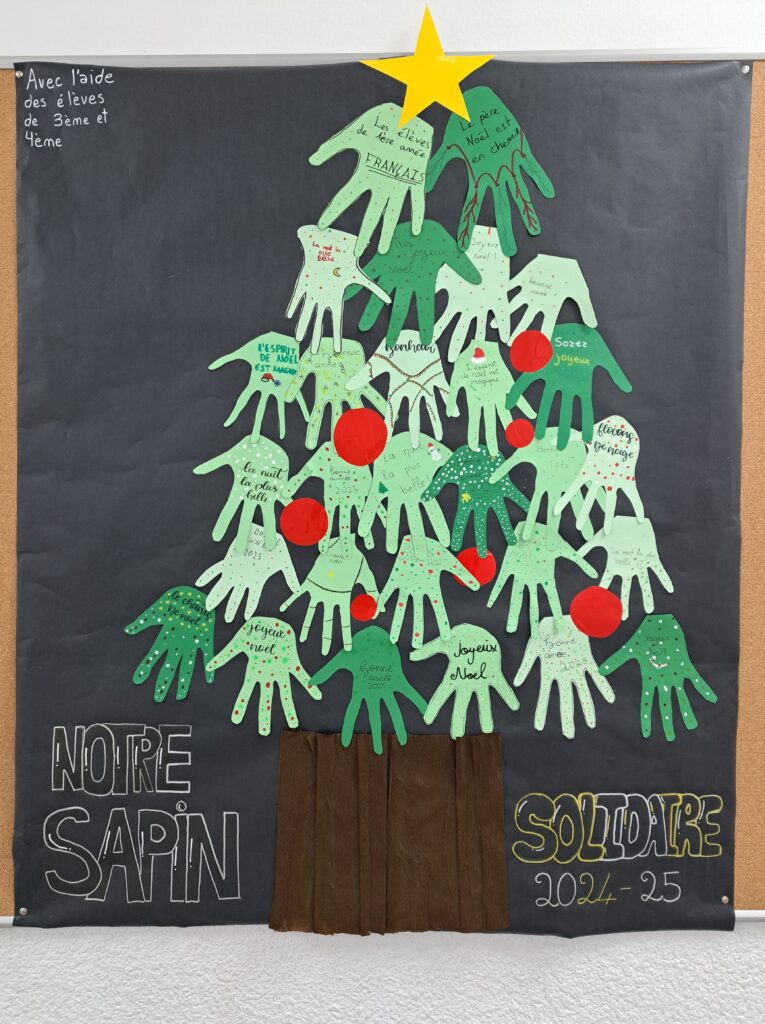 Avec l'aide
des élèves
de 3ème et
4ème
Les élèves
de 1ère année
FRANÇAIS
Le père
Noël est
en chemin
La nuit la
PLUS
BELLE
Très
joyeux
Noël
Joyeux
Noël!
L'ESPRIT
DE NOËL
EST MAGIQUE
Bonheur
L'esprit
de Noël est
magique
Soyez
joyeux
flocons
De neige
la nuit
la plus
belle
Bonne
année
2025
La nuit
la plus
belle!
2025
La nuit la plus
belle
le chant
De noël
joyeux
noël
Bonne
année
2025
Joyeux
Noël
Bonne
année
2025
NOTRE
SAPIN
SOLIDAIRE
2024-25